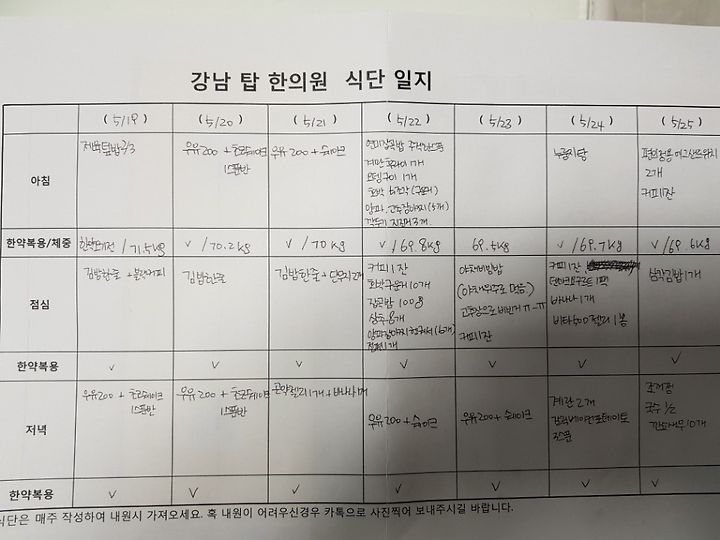 강남 탑 한의원 식단 일지
(5/19) (5/20) (5/21) (5/22) (5/23) (5/24) (5/25)
아침
제육덮밥2/3
우유200 + 초코쉐이크
1스푼반
우유 200 + 쉐이크
현미잡곡밥 주걱1스푼
계란후라이 1개
오뎅구이 1개
호박 6조각 (구운거)
양파, 고추장아찌 (5개)
깍두기
누룽지탕
편의점용 에그샌드위치
2개
커피1잔
한약복용/체중
/71.5kg
✓ /70.2kg
✓ /70kg
✓ /69.8kg
69.5kg
✓ /69.7kg
✓ /69.6kg
점심
김밥한줄 + 블랙커피
김밥한줄
김밥한줄 + 단무지2개
커피 1잔
호박구운거10개
잡곡밥 100g
상추8개
야채비빔밥
(야채위주로 먹음)
고추장으로 비빈거 ㅠㅡㅠ
커피1잔
커피1잔,
바나나 1개
비타500젤리 1봉
삼각김밥1개
한약복용
✓ ✓ ✓ ✓ ✓ ✓ ✓
저녁
우유200 + 초코쉐이크
1스푼반
우유200 + 초코쉐이크
1스푼반
곤약젤리1개 + 바나나1개
우유200 + 쉐이크
우유200 + 쉐이크
계란 2개
3스푼
국수 1/2
한약복용
✓ ✓ ✓ ✓ ✓ ✓ ✓
식단은 매주 작성하여 내원시 가져오세요. 혹 내원이 어려우신경우 카톡으로 사진찍어 보내주시길 바랍니다.